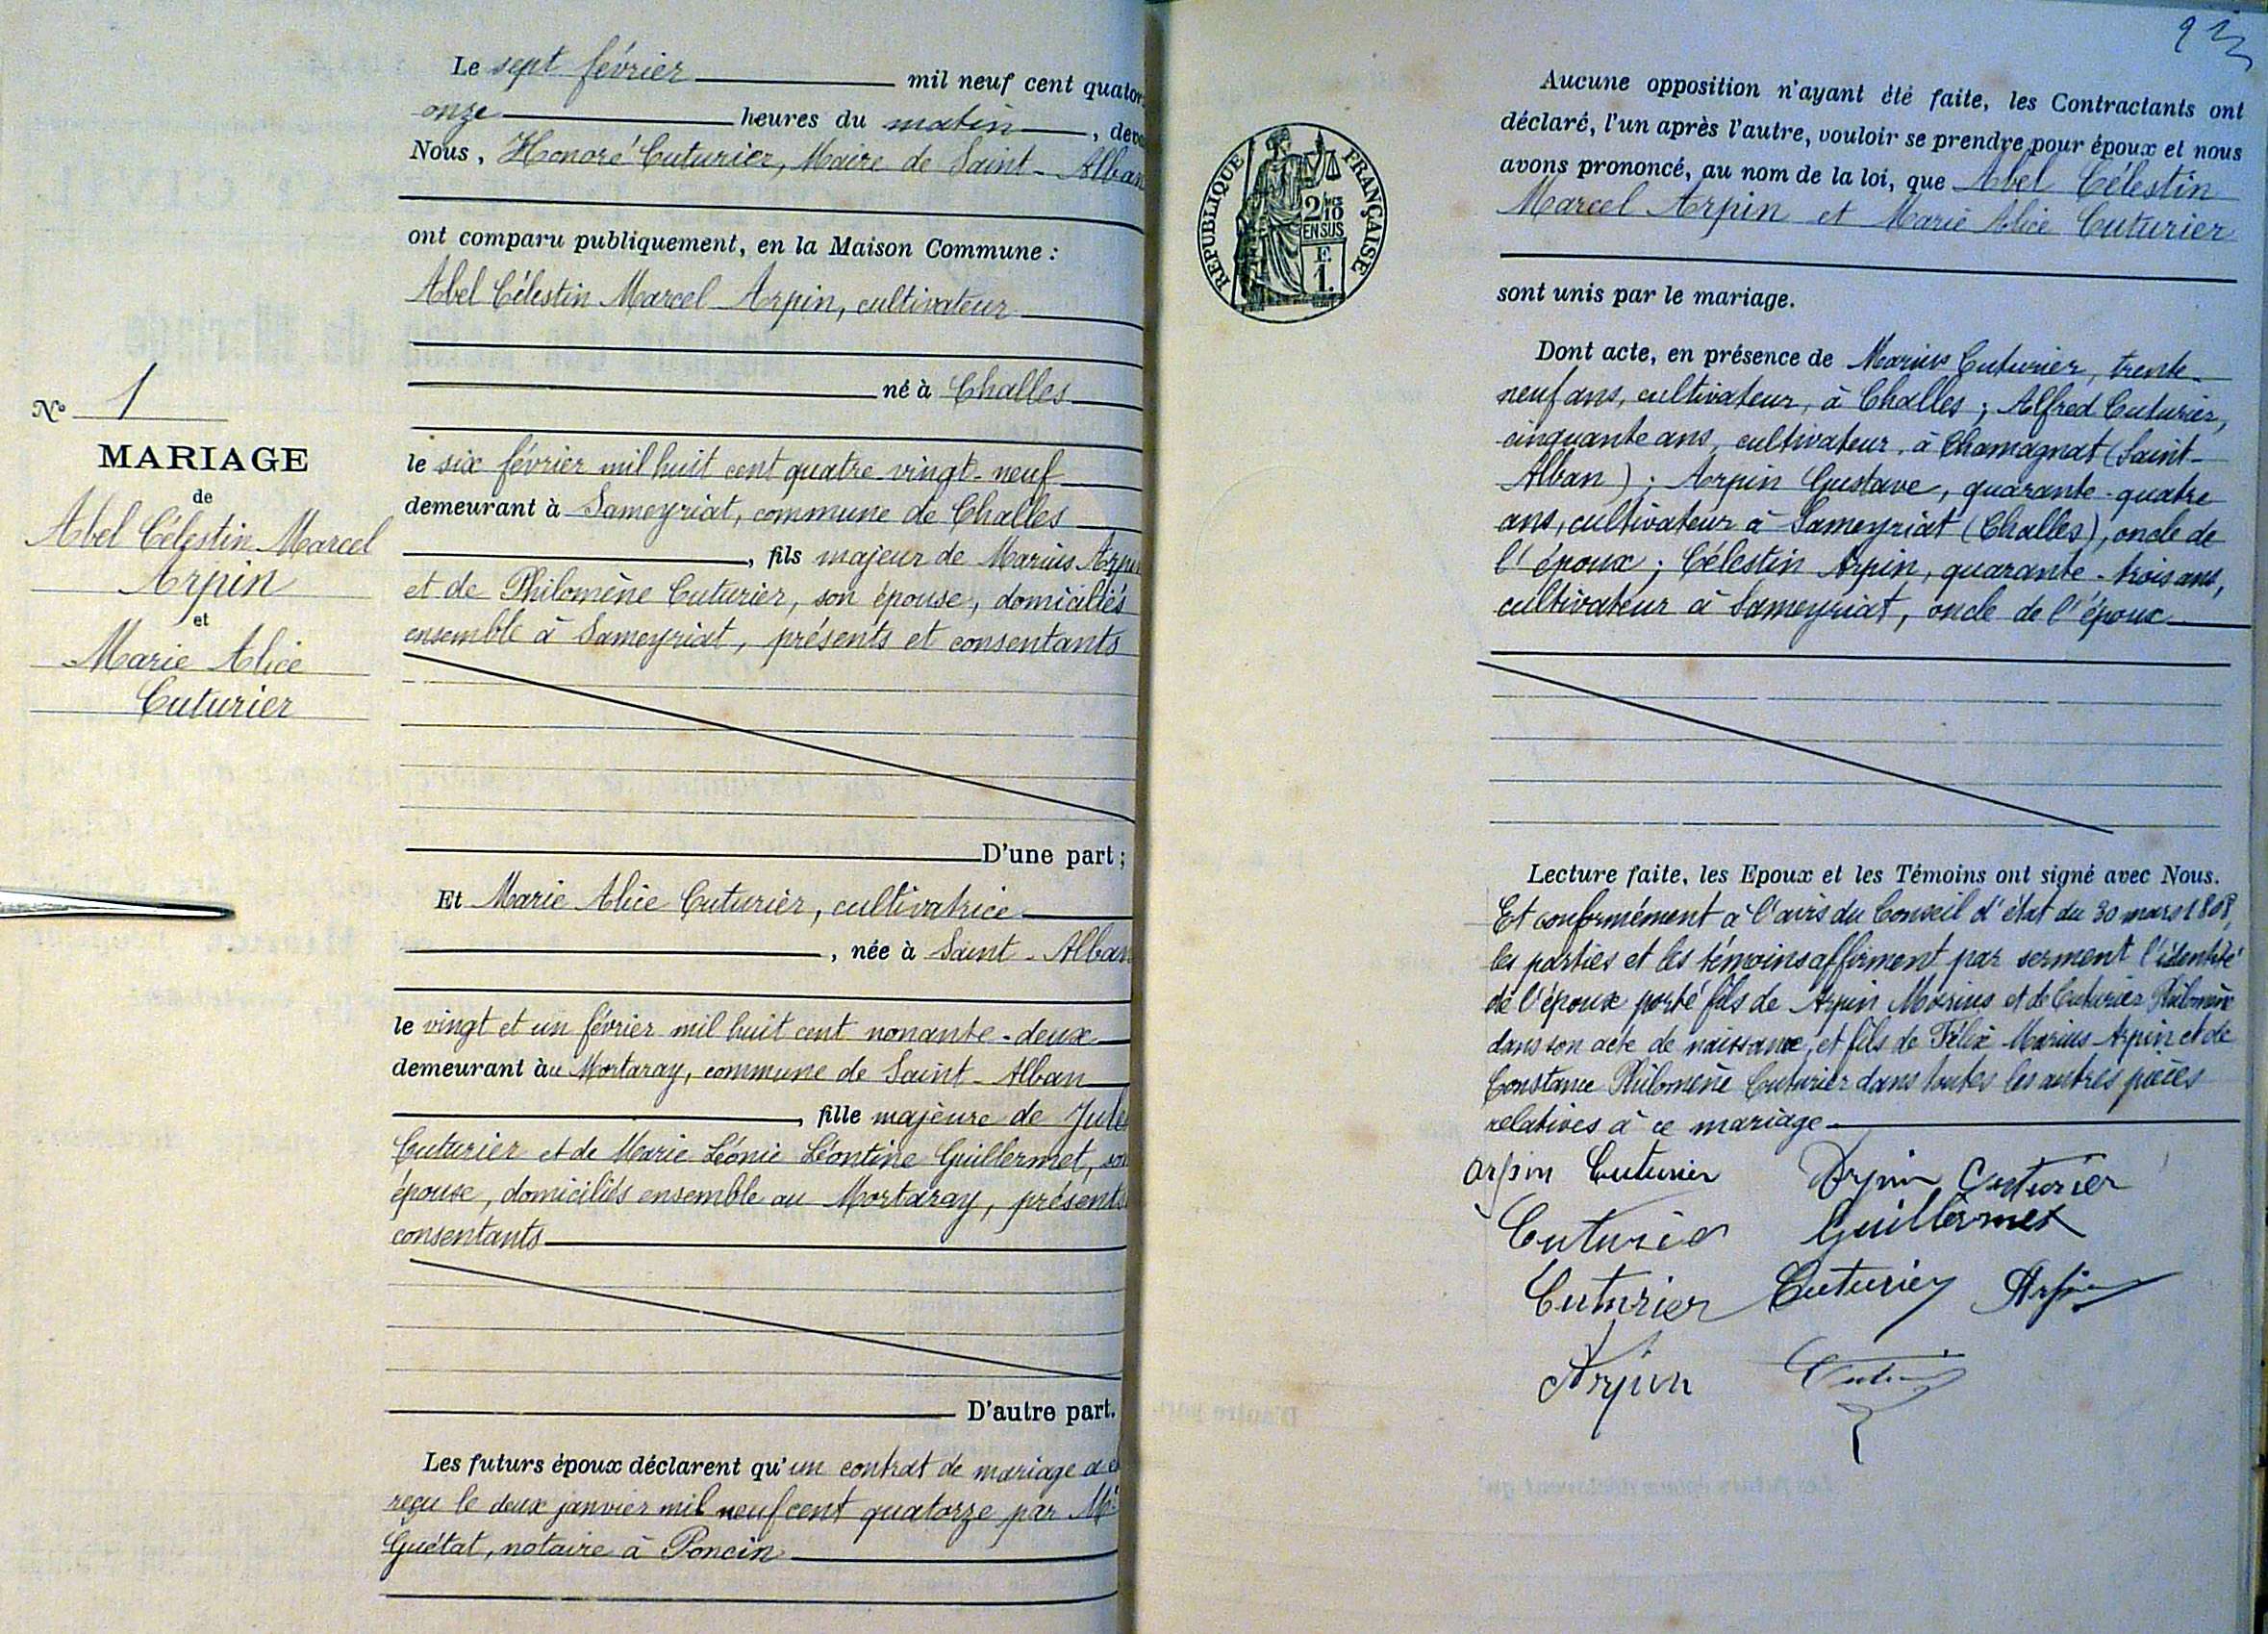 Le sept février mil neuf cent quator
onze heures du matin, deva
Nous, Honoré Cuturier, Maire de Saint-Alban
ont comparu publiquement, en la Maison Commune :
Abel Célestin Marcel Arpin, cultivateur
né à Challes
le six février mil huit cent quatre-vingt-neuf
demeurant à Sameyriat, commune de Challes
, fils majeur de Marius Arpin
et de Philomène Cuturier, son épouse, domiciliés
ensemble à Sameyriat, présents et consentants
D'une part ;
Et Marie Alice Cuturier, cultivatrice
, née à Saint-Alban
le vingt et un février mil huit cent nonante-deux
demeurant au Mortaray, commune de Saint-Alban
, fille majeure de Jules
Cuturier et de Marie Léonie Léontine Guillermet, son
épouse, domiciliés ensemble au Mortaray, présents
consentants
D'autre part.
Les futurs époux déclarent qu'un contrat de mariage a é
reçu le deux janvier mil neuf cent quatorze par Me
Guétat, notaire à Poncin
N° 1
MARIAGE
de
Abel Célestin Marcel
Arpin
et
Marie Alice
Cuturier
RÉPUBLIQUE FRANÇAISE
2/10
EN SUS
F.
1.
Aucune opposition n'ayant été faite, les Contractants ont
déclaré, l'un après l'autre, vouloir se prendre pour époux et nous
avons prononcé, au nom de la loi, que Abel Célestin
Marcel Arpin et Marie Alice Cuturier
sont unis par le mariage.
Dont acte, en présence de Marius Cuturier, trente-
neuf ans, cultivateur, à Challes ; Alfred Cuturier,
cinquante ans, cultivateur, à Chamagnat (Saint-
Alban) ; Arpin Gustave, quarante-quatre
ans, cultivateur à Sameyriat (Challes), oncle de
l'époux ; Célestin Arpin, quarante-trois ans,
cultivateur à Sameyriat, oncle de l'époux
Lecture faite, les Epoux et les Témoins ont signé avec Nous.
Et conformément à l'avis du Conseil d'état du 30 mars 1808,
les parties et les témoins affirment par serment l'identité
de l'époux porté fils de Arpin Marius et de Cuturier Philomène
dans son acte de naissance, et fils de Félix Marius Arpin et de
Constance Philomène Cuturier dans toutes les autres pièces
relatives à ce mariage
Arpin Cuturier Arpin Cuturier
Cuturier Guillermet
Cuturier Cuturier Arpin
Arpin